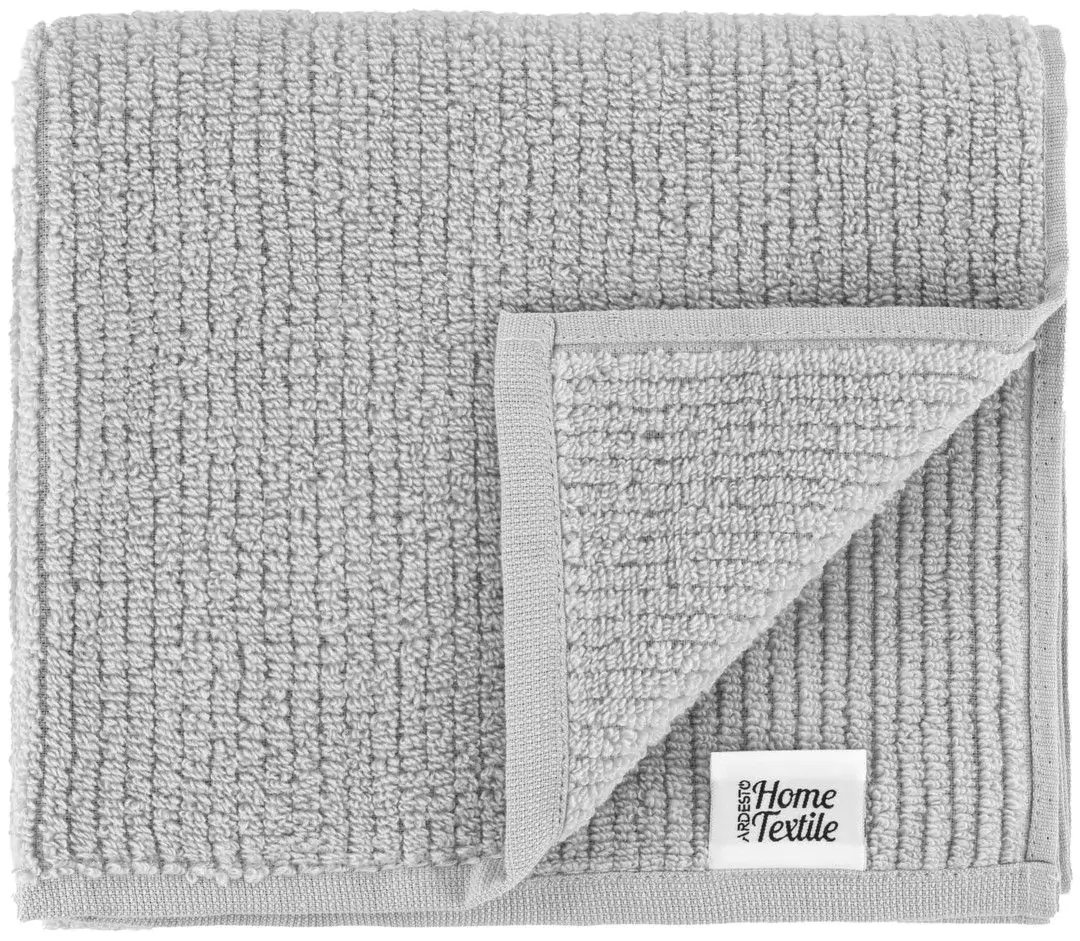 ARDESTO
Home
Textile